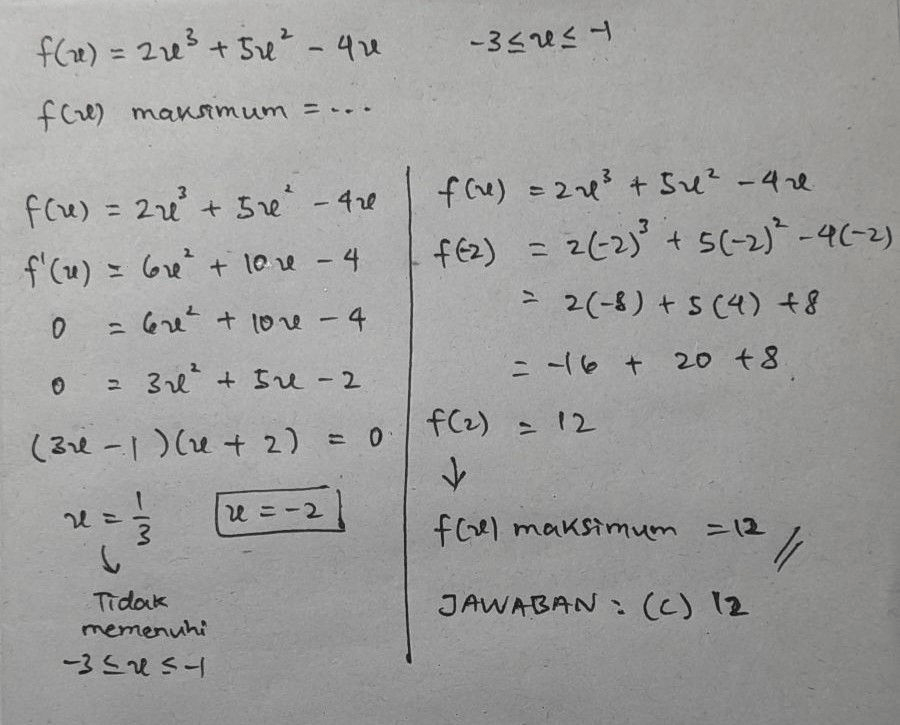 f(x) = 2x³ + 5x² - 4x    -3 ≤ x ≤ -1
f(x) maksimum = ...
f(x) = 2x³ + 5x² - 4x
f'(x) = 6x² + 10x - 4
0 = 6x² + 10x - 4
0 = 3x² + 5x - 2
(3x - 1)(x + 2) = 0
x = 1/3    x = -2
↓
Tidak
memenuhi
-3 ≤ x ≤ -1
f(x) = 2x³ + 5x² - 4x
f(-2) = 2(-2)³ + 5(-2)² - 4(-2)
= 2(-8) + 5(4) + 8
= -16 + 20 + 8
f(2) = 12
↓
f(x) maksimum = 12 //
JAWABAN : (C) 12